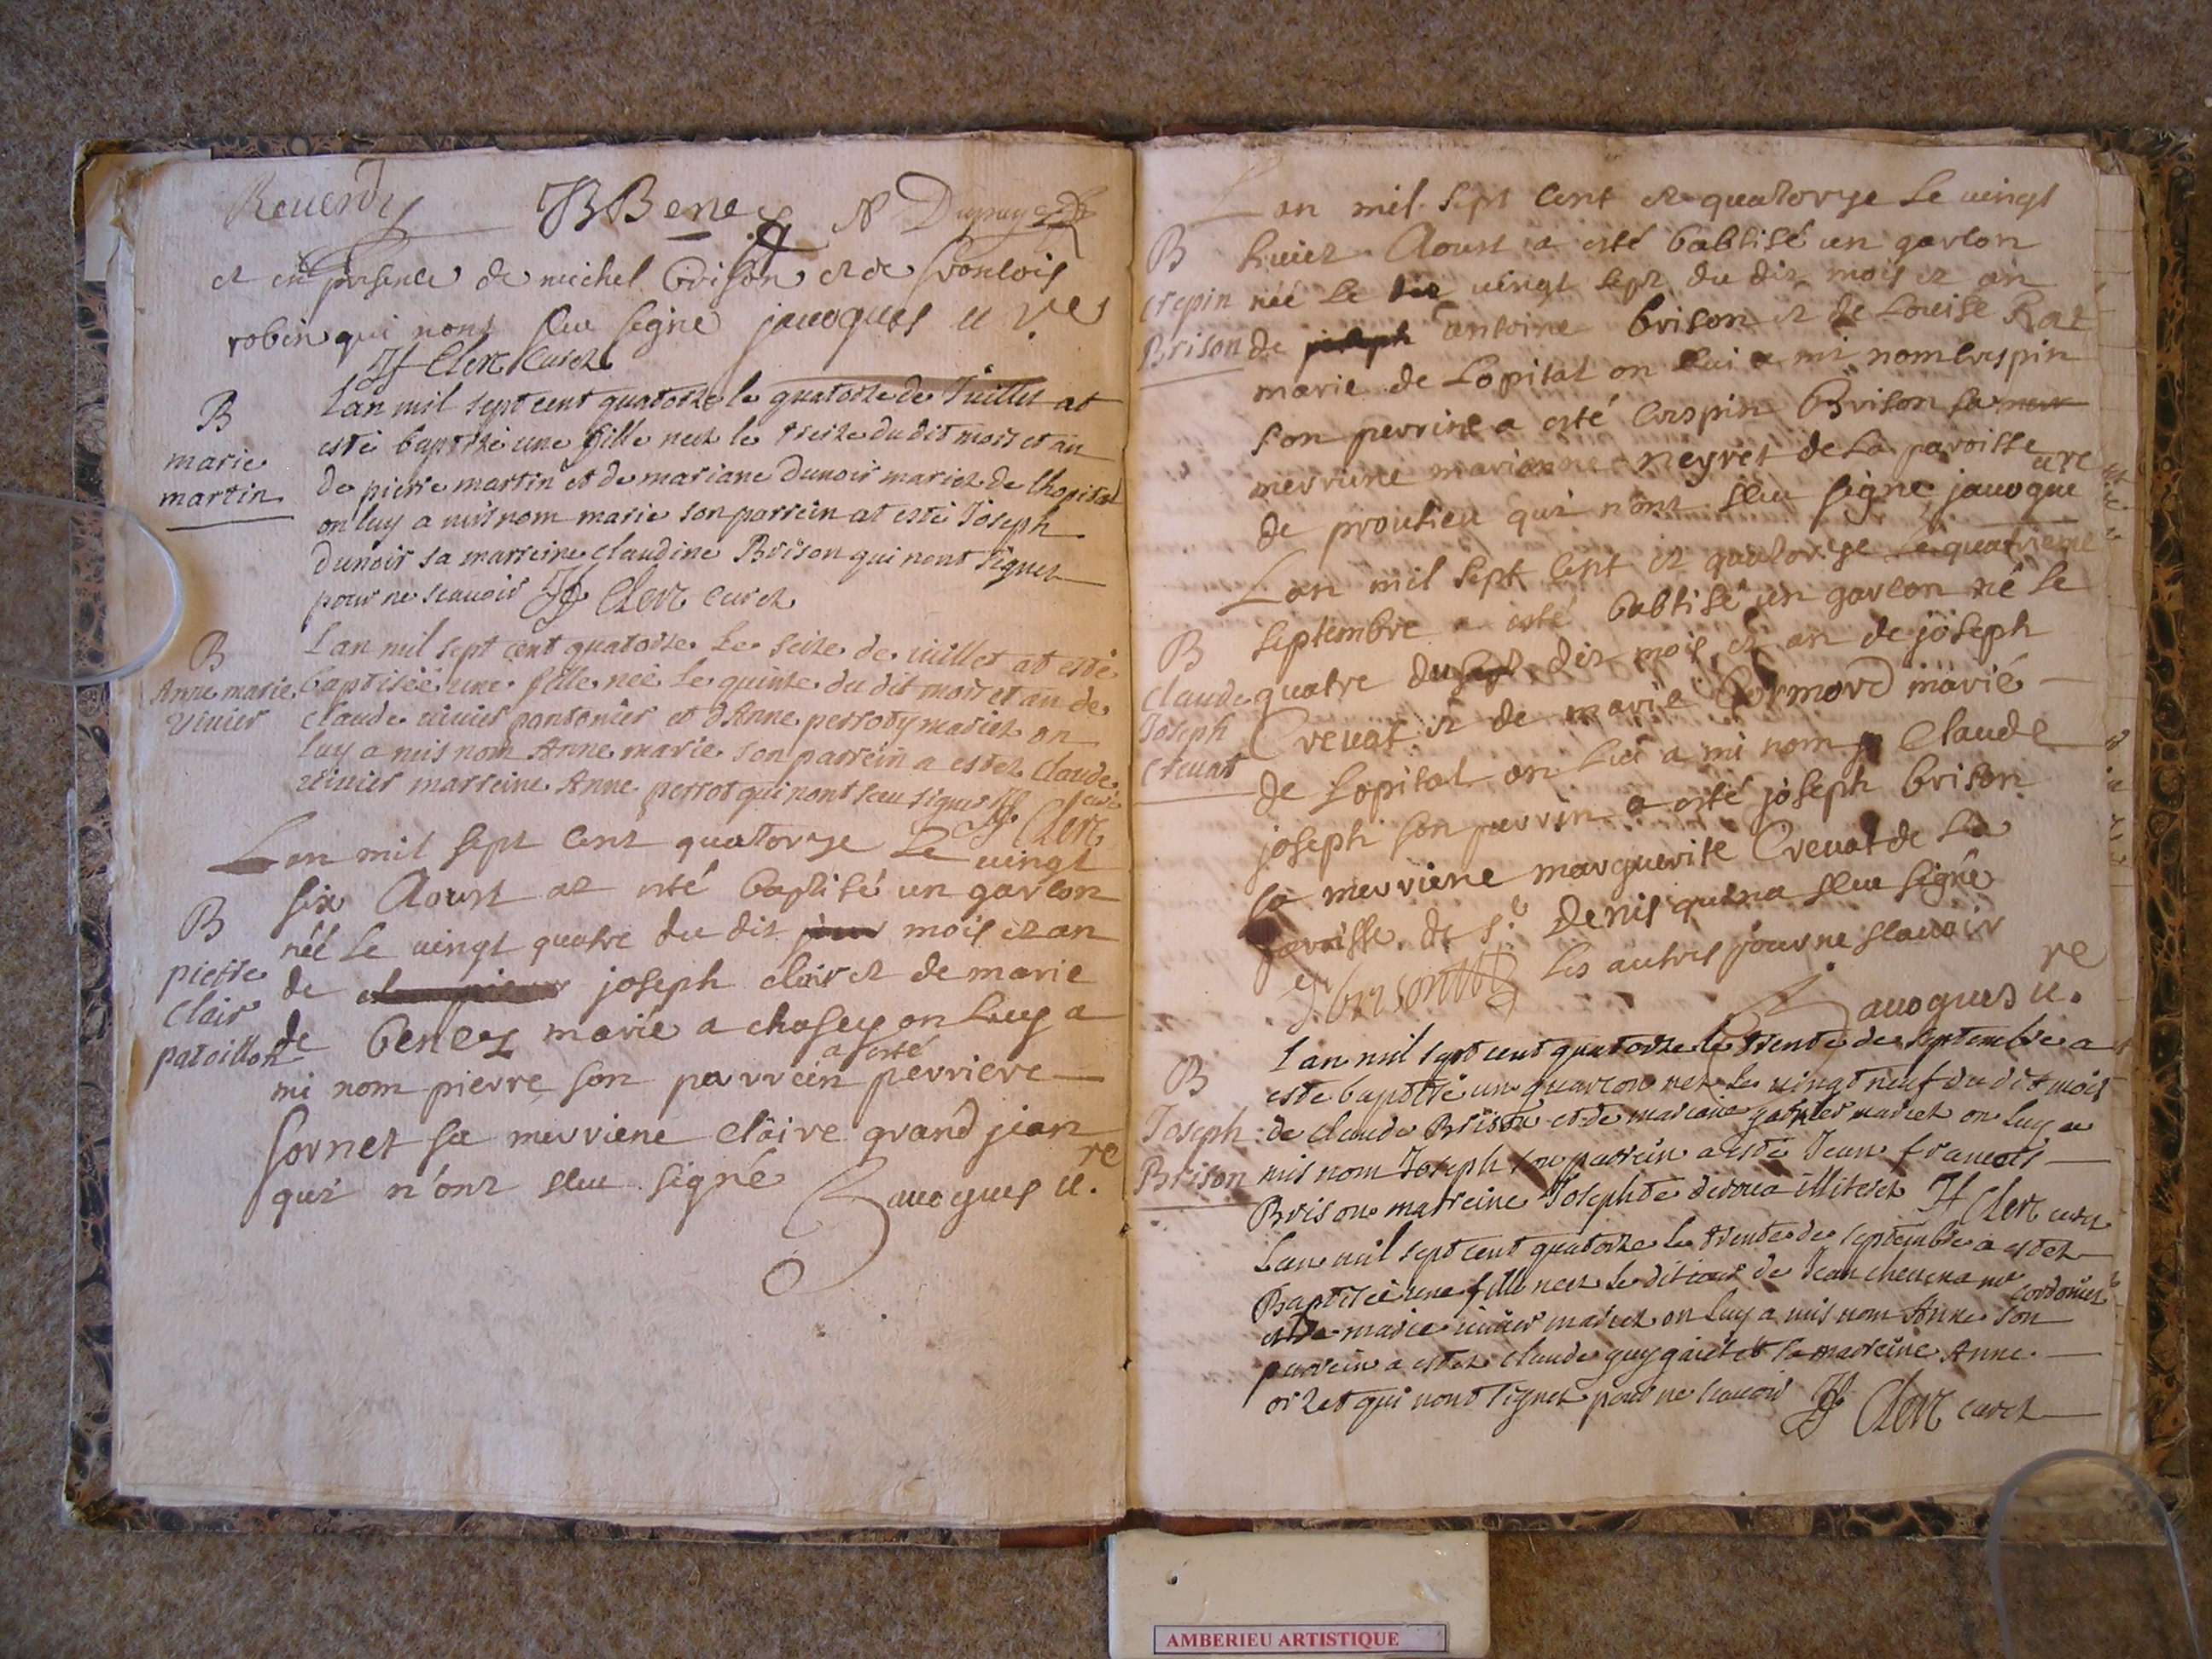 Reuerdy BBene N Dupuy
et en presence de michel brison et de francois
robin qui nont sceu signé jauoques u re
Clerc Curez
B
marie
martin
Lan mil sept cent quatorze le quatorze de Juillet at
esté baptizé une fille neez le treize du dit mois et an
de pierre martin et de mariane Dunoir mariez de lhopital
on luy a mis nom marie son parrein at esté Joseph
Dunoir sa marreine claudine Brison qui nont signez
pour ne scauoir Clerc curez
B
Anne marie
viuier
Lan mil sept cent quatorze Le seize de iuillet at esté
baptiséé une fille néé Le quinze du dit mois et an de
claude viuier pontonier et d'Anne perroty mariez on
luy a mis nom Anne marie son parrein a estez claude
viuier marreine Anne perrot qui nont sceu signer
Clerc
B
pierre
clair
patoillon
Lan mil sept cent quatorze Le vingt
six Aoust at esté baptisé un garcon
néé Le vingt quatre du dit mois et an
de joseph clair et de marie
de benez marié a chasey on Luy a
mi nom pierre son parrein a esté perriere
sornet sa merriene claire grand jean
qui n'ont sceu signé Jauoques u. re
B
crepin
Brison
Lan mil sept cent et quatorze Le vingt
huiet Aoust a esté babtisé un garcon
néé Le vingt sept du dit mois et an
de antoine brison et de Louise Rat
marie de Lopital on lui a mi nom crespin
son perrine a esté crespin Brison sa
merriene marianne neyret de La paroisse
de proutieu qui n'ont sceu signé jauoque ure
B
Claude
Joseph
Creuat
Lan mil sept cent et quatorze Le quatrieme
septembre a esté babtisé un garcon né Le
quatre du dit mois et an de joseph
Creuat et de marie Cormord marié
de Lopital on Lui a mi nom Claude
joseph son parrin a esté joseph brison
sa merriene marguerite Creuat de La
paroisse de st Denis qui na sceu signé
brison Les autres pour ne scauoir
Jauoques u. re
B
Joseph
Brison
Lan mil sept cent quatorze le trente de septembre a
este baptizé un guarcon nez Le vingt neuf du dit mois
de claude Brison et de mariane mariez on luy a
mis nom Joseph son parrein a esté Jean francois
Brison marreine Josephte illiterez Clerc curez
Lan mil sept cent quatorze le trente de septembre a estez
Baptiséé une fille neez le dit iour de Jean cordonier
et de marie viuier mariez on luy a mis nom Anne son
parrein a estez claude guygaret et sa marreine Anne
orset qui nont signez pour ne scauoir Clerc curez
AMBERIEU ARTISTIQUE